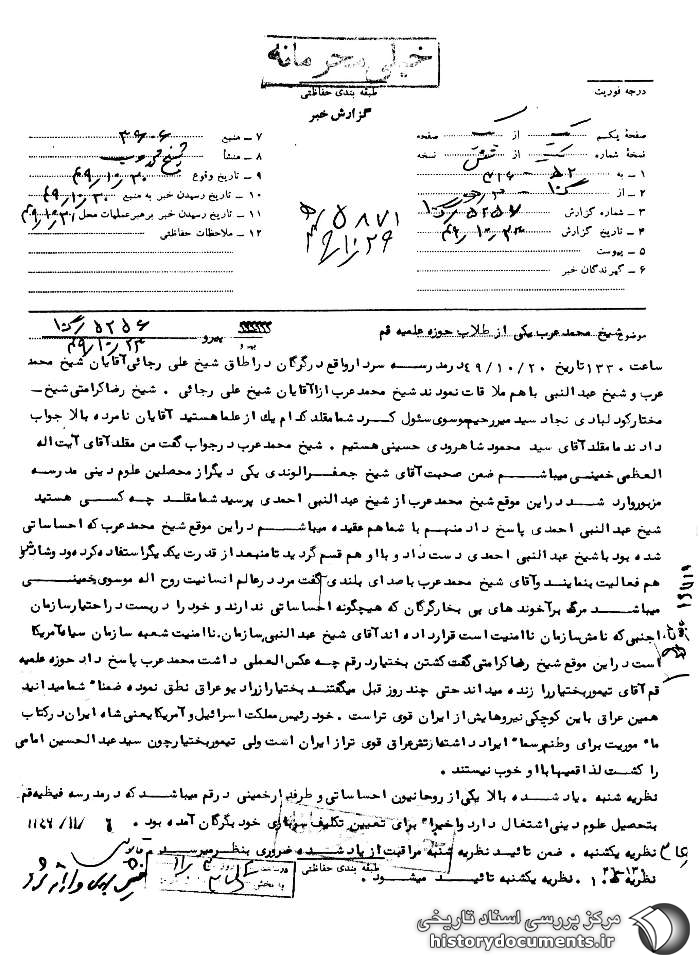 خیلی محرمانه
طبقه بندی حفاظتی
گزارش خبر
درجه فوریت
صفحهٔ یکم از صفحه
نسخهٔ شماره از نسخه
۱ ـ به
۲ ـ از
۳ ـ شماره گزارش
۴ ـ تاریخ گزارش
۵ ـ پیوست
۶ ـ گیرندگان خبر
۷ ـ منبع
۸ ـ منشأ شیخ محمد عرب
۹ ـ تاریخ وقوع ۴۹/۱۰/۲۰
۱۰ ـ تاریخ رسیدن خبر به منبع ۴۹/۱۰/۲۰
۱۱ ـ تاریخ رسیدن خبر برهبر عملیات محل
۱۲ ـ ملاحظات حفاظتی
۵۸۷۱
موضوع شیخ محمد عرب یکی از طلاب حوزه علمیه قم
پیرو ۵۲۵۶
ساعت ۱۳۳۰ تاریخ ۴۹/۱۰/۲۰ در مدرسه سردار واقع در گرگان در اطاق شیخ علی رجائی آقایان شیخ محمد
عرب و شیخ عبد النبی باهم ملاقات نمودند شیخ محمد عرب از آقایان شیخ علی رجائی . شیخ رضا کرامتی شیخ ـ
مختار کود لبادی نجاد سید میر رحیم موسوی سئول کرد شما مقلد کدام یک از علما هستید آقایان نامبرده بالا جواب
دادند ما مقلد آقای سید محمود شاهرودی حسینی هستیم . شیخ محمد عرب در جواب گفت من مقلد آقای آیت اله
العظمی خمینی میباشم ضمن صحبت آقای شیخ جعفر الوندی یکی دیگر از محصلین علوم دینی مدرسه
مزبور وارد شد در این موقع شیخ محمد عرب از شیخ عبد النبی احمدی پرسید شما مقلد چه کسی هستید
شیخ عبد النبی احمدی پاسخ داد منهم با شما هم عقیده میباشم در این موقع شیخ محمد عرب که احساساتی
شده بود با شیخ عبد النبی احمدی دست داد و با او هم قسم گردید تا منبعد از قدرت یکدیگر استفاده کرده و دوشادوش
هم فعالیت بنمایند و آقای شیخ محمد عرب با صدای بلندی گفت مرد در عالم انسانیت روح اله موسوی خمینی
میباشد مرگ بر آخوندهای بی بخار گرگان که هیچگونه احساساتی ندارند و خود را در بست در اختیار سازمان
اجنبی که نامش سازمان ناامنیت است قرار داده اند آقای شیخ عبد النبی سازمان ناامنیت شعبه سازمان سیا آمریکا
است در این موقع شیخ رضا کرامتی گفت کشتن بختیار در قم چه عکس العملی داشت محمد عرب پاسخ داد حوزه علمیه
قم آقای تیمور بختیار را زنده میداند حتی چند روز قبل میگفتند بختیار از رادیو عراق نطق نموده ضمنا" شما میدانید
همین عراق باین کوچکی نیروهایش از ایران قوی تر است . خود رئیس مملکت اسرائیل و آمریکا یعنی شاه ایران در کتاب
مأموریت برای وطنم رسما" ایراد داشته ارتش عراق قوی تر از ایران است ولی تیمور بختیار چون سید عبد الحسین امامی
را کشت لذا قمیها با او خوب نیستند .
نظریه شنبه . یاد شده بالا یکی از روحانیون احساساتی و طرفدار خمینی در قم میباشد که در مدرسه فیضیه قم
بتحصیل علوم دینی اشتغال دارد و اخیرا" برای تعیین تکلیف سربازی خود بگرگان آمده بود .
نظریه یکشنبه . ضمن تائید نظریه شنبه مراقبت از یاد شده ضروری بنظر میرسد
نظریه . نظریه یکشنبه تائید میشود .
طبقه بندی حفاظتی
مرکز بررسی اسناد تاریخی
historydocuments.ir